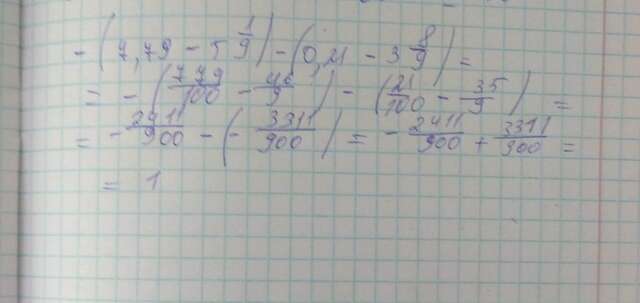 -(7,79 - 5 1/9) - (0,21 - 3 8/9) =
= -(779/100 - 46/9) - (21/100 - 35/9) =
= -2411/900 - (-3311/900) = -2411/900 + 3311/900 =
= 1